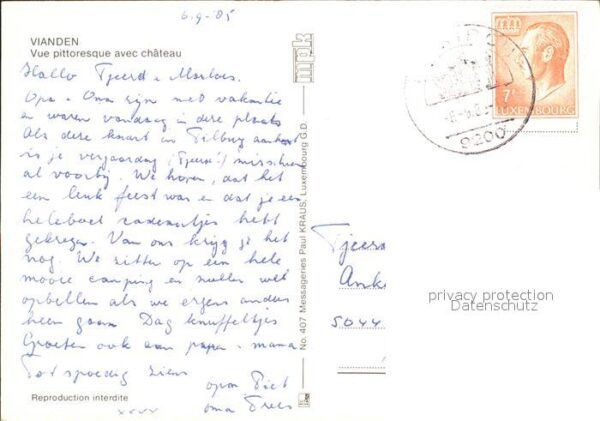 6-9-'85
VIANDEN
Vue pittoresque avec château
Hallo Tjeerd + Marloes.
Opa + Oma zijn met vakantie
en waren vandaag in deze plaats
Als deze kaart in Tilburg aankomt
is je verjaardag (Tjeerd!) misschien
al voorbij. We hopen, dat het
een leuk feest was en dat je een
heleboel kadoortjes hebt
gekregen. Van ons krijg je het
nog. We zitten op een hele
mooie camping en zullen wel
opbellen als we ergens anders
heen gaan Dag knuffeltjes
Groeten ook aan papa + mama
Tot spoedig ziens
opa Piet
oma Trees
xxxx
Reproduction interdite
mpk
No. 407 Messageries Paul KRAUS, Luxembourg G.D.
7F
LUXEMBOURG
9200
Tjeerd
Anke
5044
privacy protection
Datenschutz